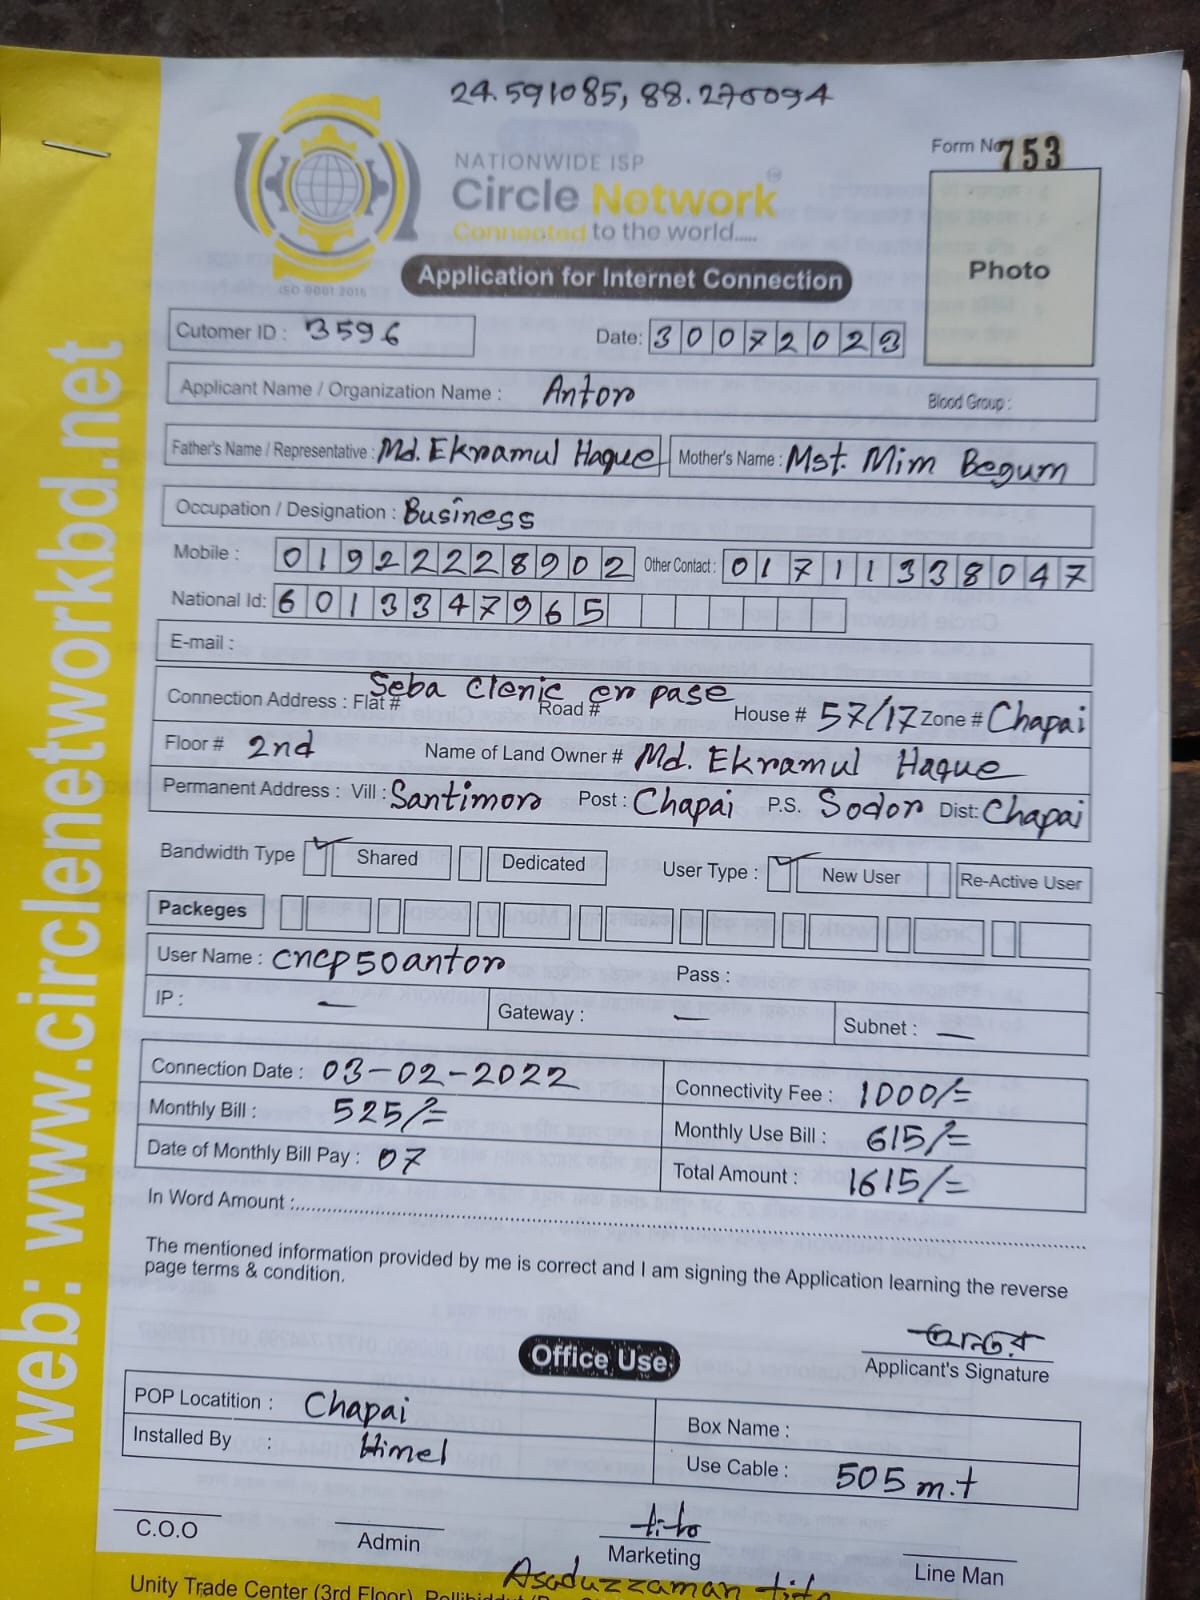 24.591085, 88.276094
NATIONWIDE ISP
Circle Network
Connected to the world.....
ISO 9001 2015
Form No 753
Photo
Application for Internet Connection
Cutomer ID : 3596
Date: 30072023
Applicant Name / Organization Name : Antor
Blood Group :
Father's Name / Representative : Md. Ekramul Haque
Mother's Name : Mst. Mim Begum
Occupation / Designation : Business
Mobile : 01922228902 Other Contact : 01711338047
National Id: 6013347965
E-mail :
Connection Address : Flat # Seba Clenic er pase Road # House # 57/17 Zone # Chapai
Floor # 2nd Name of Land Owner # Md. Ekramul Haque
Permanent Address : Vill : Santimor Post : Chapai P.S. Sodor Dist: Chapai
Bandwidth Type Shared Dedicated User Type : New User Re-Active User
Packeges
User Name : cncp50antor Pass :
IP : — Gateway : — Subnet : —
Connection Date : 03-02-2022 Connectivity Fee : 1000/=
Monthly Bill : 525/= Monthly Use Bill : 615/=
Date of Monthly Bill Pay : 07 Total Amount : 1615/=
In Word Amount :
The mentioned information provided by me is correct and I am signing the Application learning the reverse
page terms & condition.
অন্তর
Applicant's Signature
Office Use
POP Locatition : Chapai Box Name :
Installed By : Himel Use Cable : 505 m.t
C.O.O Admin tito Marketing Line Man
Asaduzzaman tito
Unity Trade Center (3rd Floor),
web: www.circlenetworkbd.net